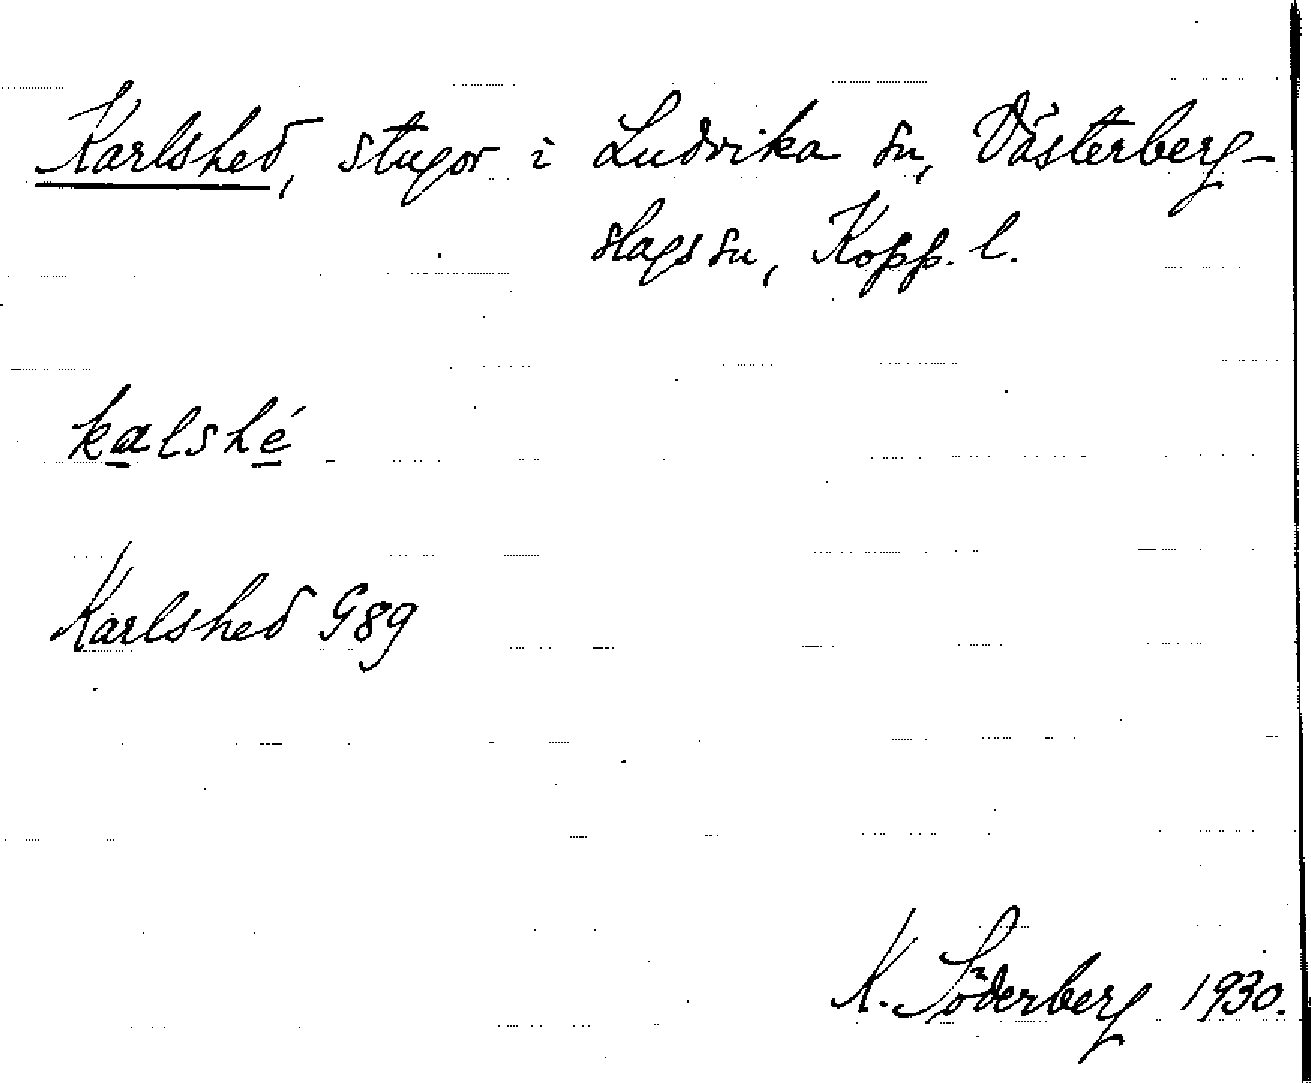 Karlshed, stugor i Ludvika sn, Västerberg-
slags sn, Kopp. l.
kalshé
Karlshed G89
K. Söderberg 1930.